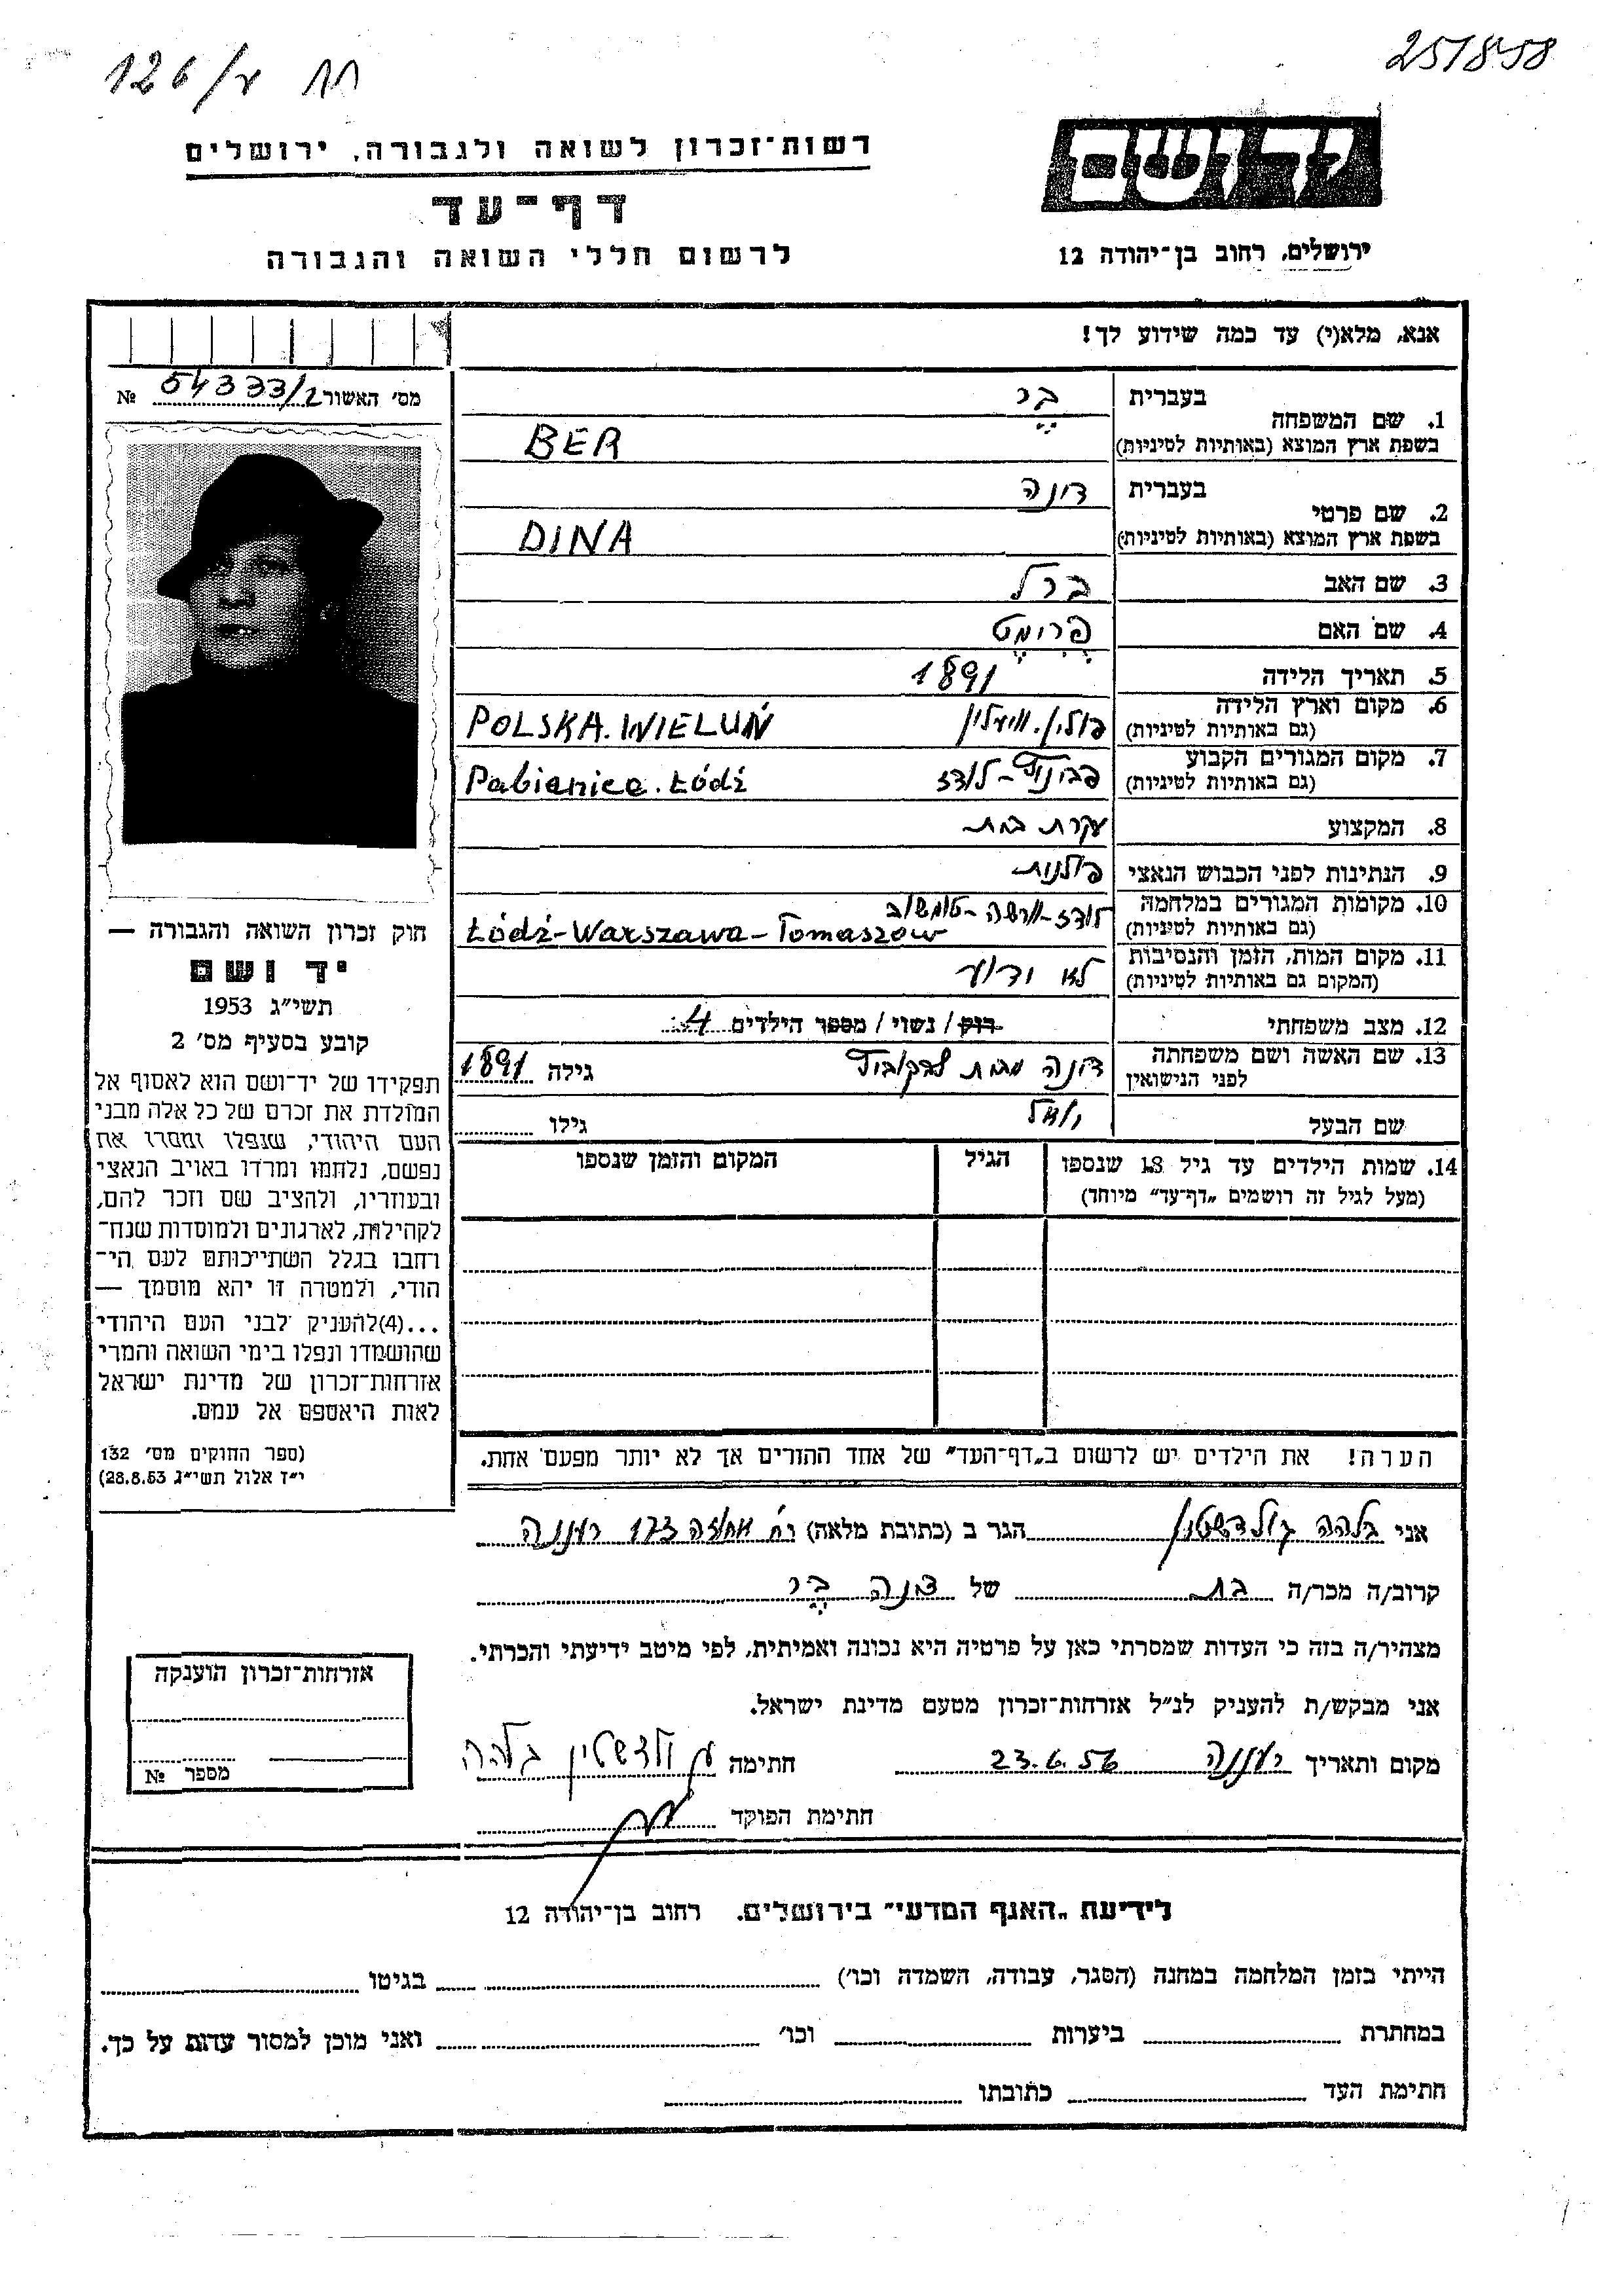 126/ע חח
251858
רשות־זכרון לשואה ולגבורה, ירושלים
דף־עד
לרשום חללי השואה והגבורה
ידושם
ירושלים, רחוב בן־יהודה 12
אנא, מלא(י) עד כמה שידוע לך!
מס׳ האשור 54333/2 №
1. שם המשפחה
בעברית בר
בשפת ארץ המוצא (באותיות לטיניות) BER
2. שם פרטי
בעברית דינה
בשפת ארץ המוצא (באותיות לטיניות) DINA
3. שם האב ברל
4. שם האם פרימט
5. תאריך הלידה 1891
6. מקום וארץ הלידה
(גם באותיות לטיניות) פולין. POLSKA. WIELUŃ
7. מקום המגורים הקבוע
(גם באותיות לטיניות) פביניץ - לודז Pabianice. Łódź
8. המקצוע עקרת בית
9. הנתינות לפני הכבוש הנאצי פולנית
10. מקומות המגורים במלחמה לודז - ורשה - טומשוב
(גם באותיות לטיניות) Łódź - Warszawa - Tomaszów
11. מקום המות, הזמן והנסיבות
(המקום גם באותיות לטיניות) לא ידוע
12. מצב משפחתי רוק / נשוי / מספר הילדים 4
13. שם האשה ושם משפחתה
לפני הנישואין דינה מבית גילה 1891
שם הבעל גילו
14. שמות הילדים עד גיל 18 שנספו הגיל המקום והזמן שנספו
(מעל לגיל זה רושמים „דף־עד״ מיוחד)
הערה! את הילדים יש לרשום ב„דף־העד״ של אחד ההורים אך לא יותר מפעם אחת.
חוק זכרון השואה והגבורה —
יד ושם
תשי״ג 1953
קובע בסעיף מס׳ 2
תפקידו של יד־ושם הוא לאסוף אל
המולדת את זכרם של כל אלה מבני
העם היהודי, שנפלו ומסרו את
נפשם, נלחמו ומרדו באויב הנאצי
ובעוזריו, ולהציב שם וזכר להם,
לקהילות, לארגונים ולמוסדות שנח־
רחבו בגלל השתייכותם לעם הי־
הודי, ולמטרה זו יהא מוסמך —
...(4)להעניק לבני העם היהודי
שהושמדו ונפלו בימי השואה והמרי
אזרחות־זכרון של מדינת ישראל
לאות היאספם אל עמם.
(ספר החוקים מס׳ 132
י״ז אלול תשי״ג 28.8.53)
אני בלהה גולדשטיין הגר ב (כתובת מלאה) רח׳ אחוזה 173 רעננה
קרוב/ה מכר/ה בת של דינה בר
מצהיר/ה בזה כי העדות שמסרתי כאן על פרטיה היא נכונה ואמיתית, לפי מיטב ידיעתי והכרתי.
אני מבקש/ת להעניק לנ״ל אזרחות־זכרון מטעם מדינת ישראל.
מקום ותאריך רעננה 23.6.56 חתימה גולדשטיין בלהה
חתימת הפוקד
אזרחות־זכרון הוענקה
מספר №
לידיעת „האגף המדעי״ בירושלים, רחוב בן־יהודה 12
הייתי בזמן המלחמה במחנה (הסגר, עבודה, השמדה וכו׳) בגיטו
במחתרת ביערות וכו׳ ואני מוכן למסור עדות על כך.
חתימת העד כתובתו